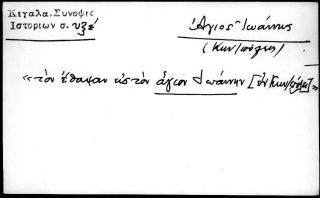 Κιγαλα, Συνοψις
Ἱστοριων σ. υξε´
Ἅγιος Ἰωάννης
(Κων/πόλεως)
«τὸν ἔθαψαν εἰς τὸν ἅγιον Ἰωάννην [ἐν Κων/πόλει]»